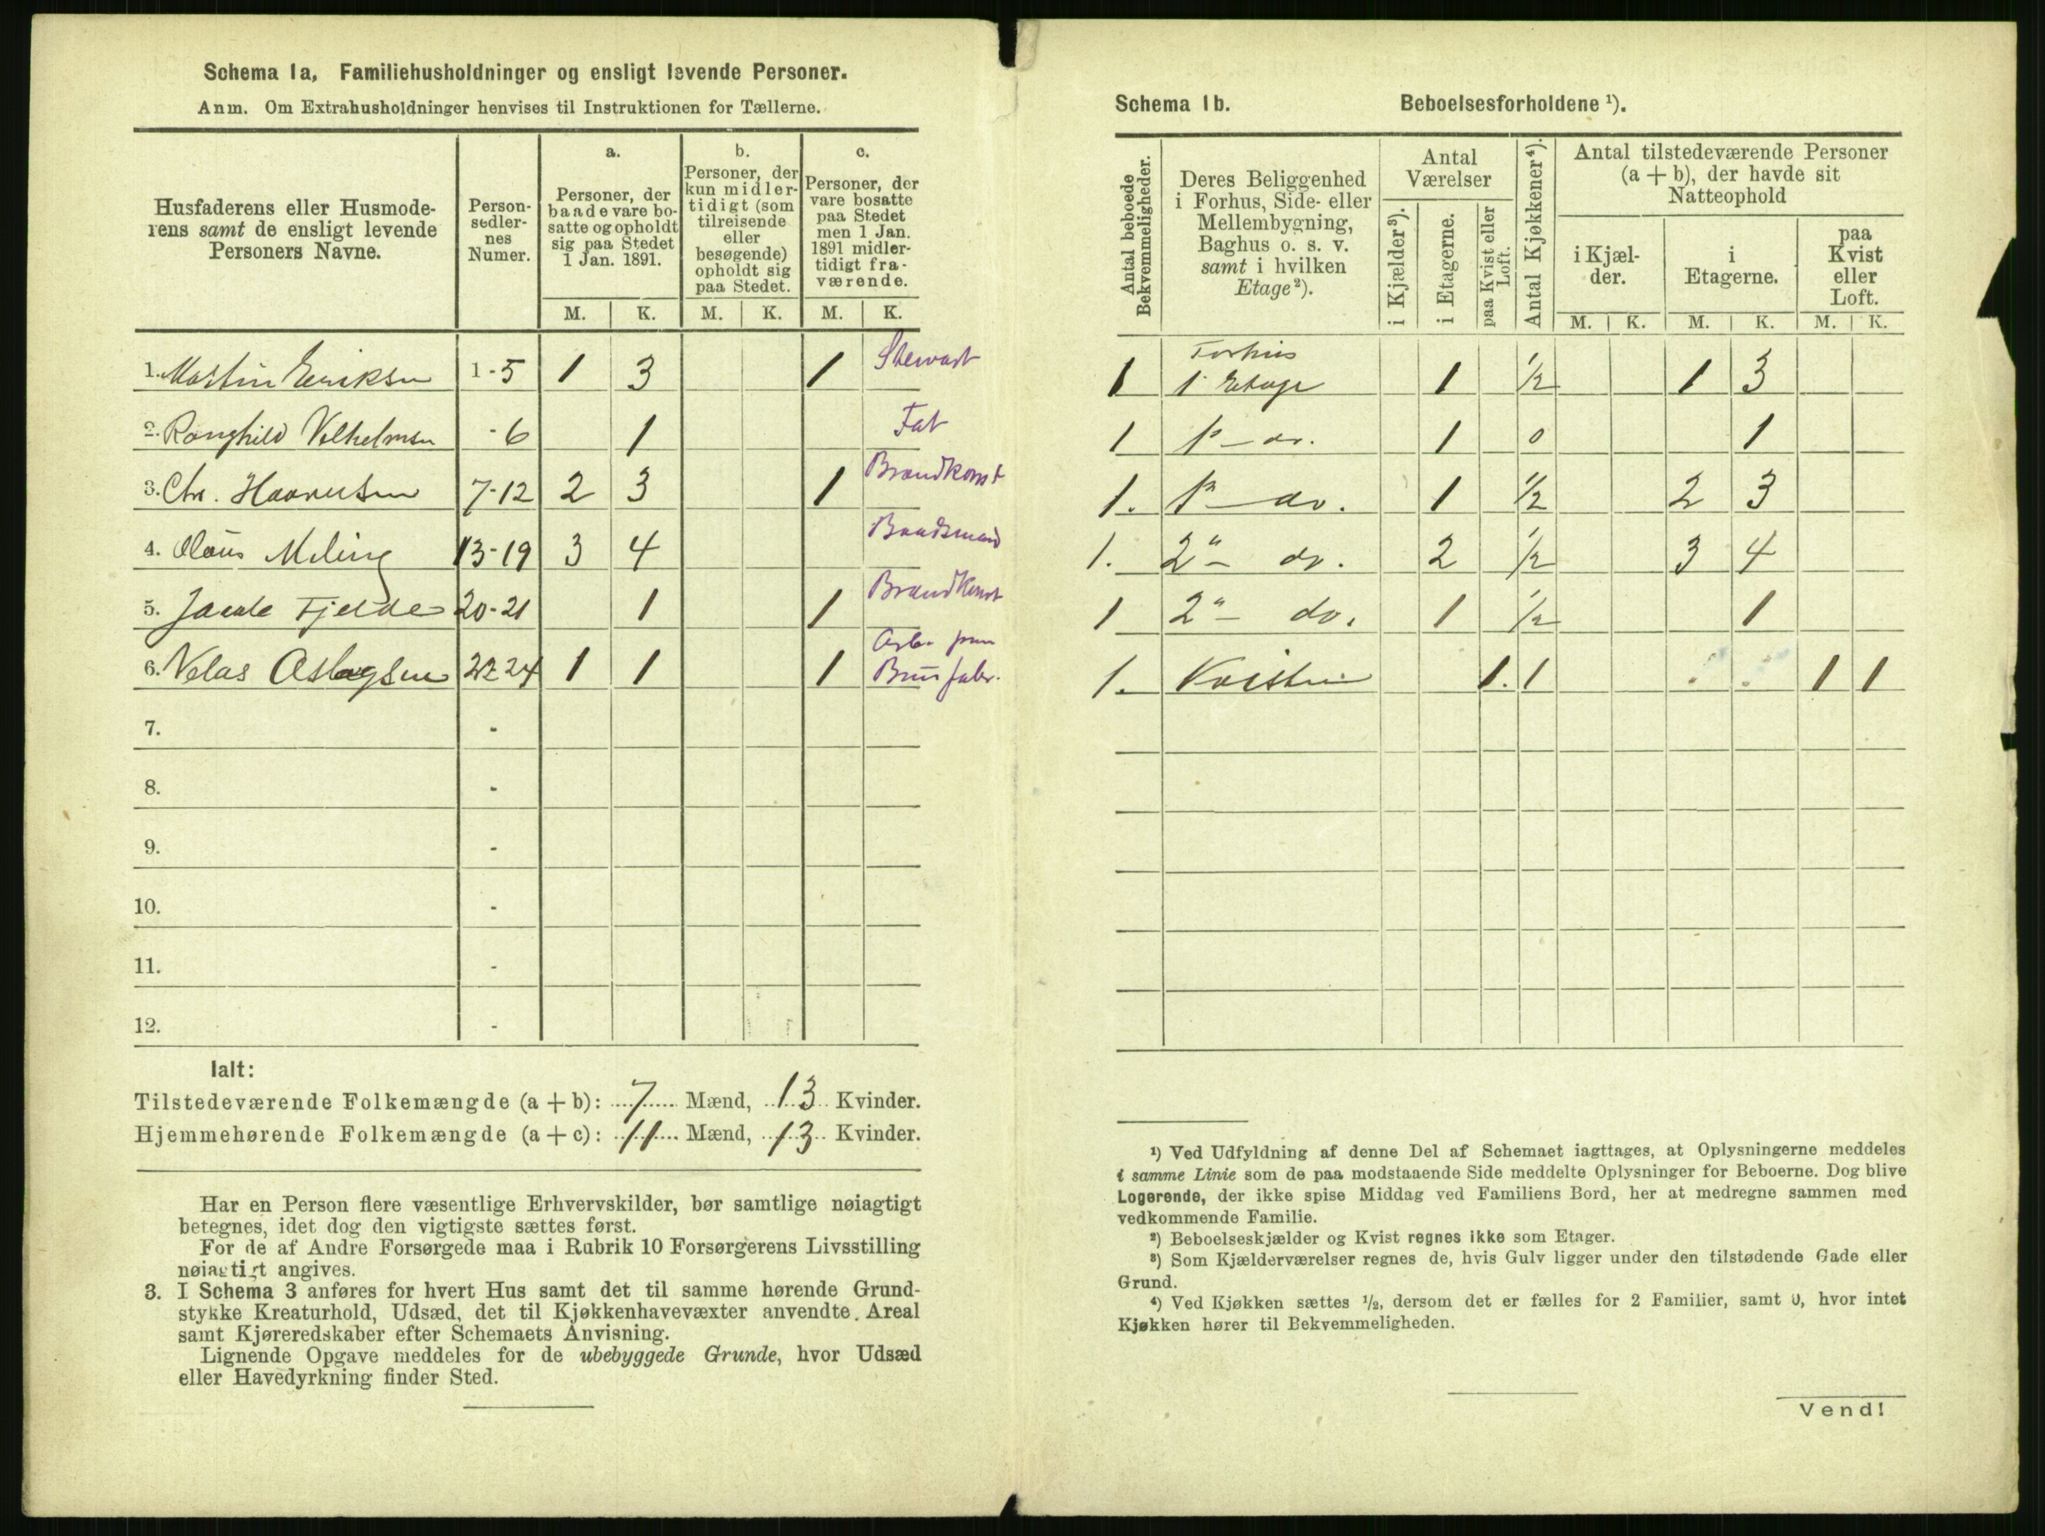 Schema 1a, Familiehusholdninger og ensligt levende Personer.
Anm. Om Extrahusholdninger henvises til Instruktionen for Tællerne.
Husfaderens eller Husmode-
rens samt de ensligt levende
Personers Navne.
Person-
sedler-
nes
Numer.
a.
Personer, der
baade vare bo-
satte og opholdt
sig paa Stedet
1 Jan. 1891.
b.
Personer, der
kun midler-
tidigt (som
tilreisende
eller
besøgende)
opholdt sig
paa Stedet.
c.
Personer, der
vare bosatte
paa Stedet
men 1 Jan.
1891 midler-
tidigt fra-
værende.
M. K. M. K. M. K.
1. Martin Eriksen 1-5 1 3 1 Steward
2. Ranghild Velhelmsen -6 1 Fat
3. Chr. Haaversen 7-12 2 3 1 Brandkonst
4. Olaus Meling 13-19 3 4 Baadsmand
5. Fjelde 20-21 1 1 Brandkonst
6. Velas Aslagsen 22-24 1 1 1 Arb. paa
7. -
8. -
9. -
10. -
11. -
12. -
Ialt:
Tilstedeværende Folkemængde (a + b): 7 Mænd, 13 Kvinder.
Hjemmehørende Folkemængde (a + c): 11 Mænd, 13 Kvinder.
Har en Person flere væsentlige Erhvervskilder, bør samtlige nøiagtigt
betegnes, idet dog den vigtigste sættes først.
For de af Andre Forsørgede maa i Rubrik 10 Forsørgerens Livsstilling
nøiagtigt angives.
3. I Schema 3 anføres for hvert Hus samt det til samme hørende Grund-
stykke Kreaturhold, Udsæd, det til Kjøkkenhavevæxter anvendte Areal
samt Kjøreredskaber efter Schemaets Anvisning.
Lignende Opgave meddeles for de ubebyggede Grunde, hvor Udsæd
eller Havedyrkning finder Sted.
Schema 1b. Beboelsesforholdene ¹).
Antal beboede
Bekvemmeligheder.
Deres Beliggenhed
i Forhus, Side- eller
Mellembygning,
Baghus o. s. v.
samt i hvilken
Etage²).
Antal
Værelser
i Kjælder³).
i Etagerne.
paa Kvist eller
Loft.
Antal Kjøkkener⁴).
Antal tilstedeværende Personer
(a + b), der havde sit
Natteophold
i Kjæl-
der.
i
Etagerne.
paa
Kvist
eller
Loft.
M. K. M. K. M. K.
Forhus
1 1' Etage 1 1/2 1 3
1 1ª — do. 1 0 1
1. 1ª — do. 1 1/2 2 3
1. 2" — do. 2 1/2 3 4
1 2" — do. 1 1/2 1
1. Kvisten 1. 1 1 1
¹) Ved Udfyldning af denne Del af Schemaet iagttages, at Oplysningerne meddeles
i samme Linie som de paa modstaaende Side meddelte Oplysninger for Beboerne. Dog blive
Logerende, der ikke spise Middag ved Familiens Bord, her at medregne sammen med
vedkommende Familie.
²) Beboelseskjælder og Kvist regnes ikke som Etager.
³) Som Kjælderværelser regnes de, hvis Gulv ligger under den tilstødende Gade eller
Grund.
⁴) Ved Kjøkken sættes ½, dersom det er fælles for 2 Familier, samt 0, hvor intet
Kjøkken hører til Bekvemmeligheden.
Vend!